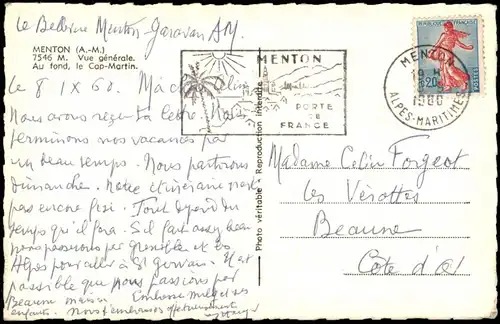 Le Bellvue Menton Garavan AM
MENTON (A.-M.)
7546 M. Vue générale.
Au fond, le Cap-Martin.
Le 8 IX 60. Ma chère
Nous avons reçu ta lettre. Nous
terminons nos vacances par
un beau temps. Nous partirons
dimanche. Notre itinéraire n'est
pas encore fixé. Tout dépend du
temps qu'il fera. S'il fait assez beau
nous passerons par Grenoble et les
Alpes pour aller à St Gervais. Il est
possible que nous passions par
Beaune
enfants. Nous t'embrassons affectueusement
Photo véritable - Reproduction interdite
MENTON
PORTE
DE
FRANCE
MENTON
19 H
1960
ALPES-MARITIMES
0,20
POSTES
Madame Colin Forgeot
Les Vérottes
Beaune
Côte d'Or